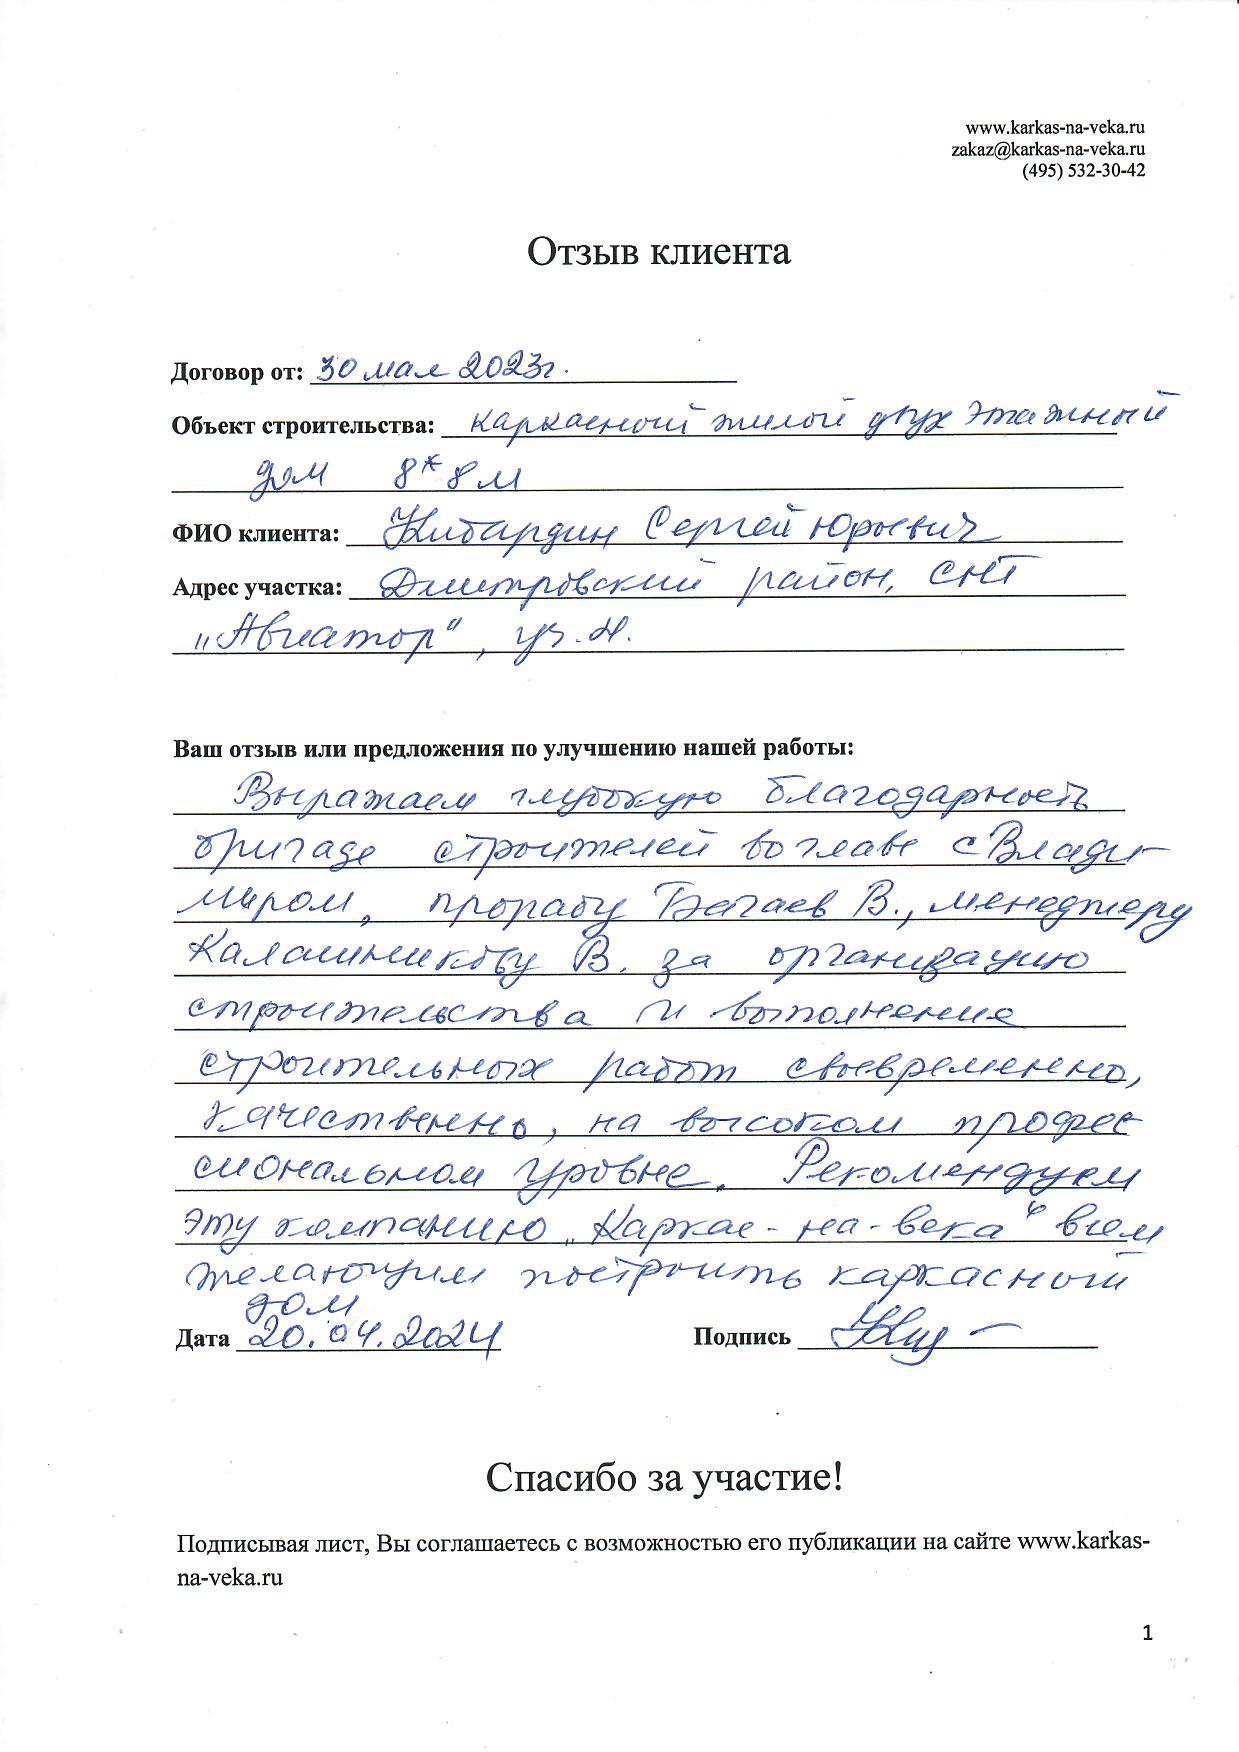 www.karkas-na-veka.ru
zakaz@karkas-na-veka.ru
(495) 532-30-42
Отзыв клиента
Договор от: 30 мая 2023г.
Объект строительства: каркасный жилой двух этажный
дом 8*8м
ФИО клиента: Кибардин Сергей Юрьевич
Адрес участка: Дмитровский район, СНТ
„Авиатор“, уч.
Ваш отзыв или предложения по улучшению нашей работы:
Выражаем глубокую благодарность
бригаде строителей во главе с Влади-
миром, прорабу Бегаев В., менеджеру
Калашникову В. за организацию
строительства и выполнение
строительных работ своевременно,
качественно, на высоком профес
сиональном уровне. Рекомендуем
эту компанию „Каркас-на-века“ всем
желающим построить каркасный
дом
Дата 20.04.2024 Подпись
Спасибо за участие!
Подписывая лист, Вы соглашаетесь с возможностью его публикации на сайте www.karkas-
na-veka.ru
1